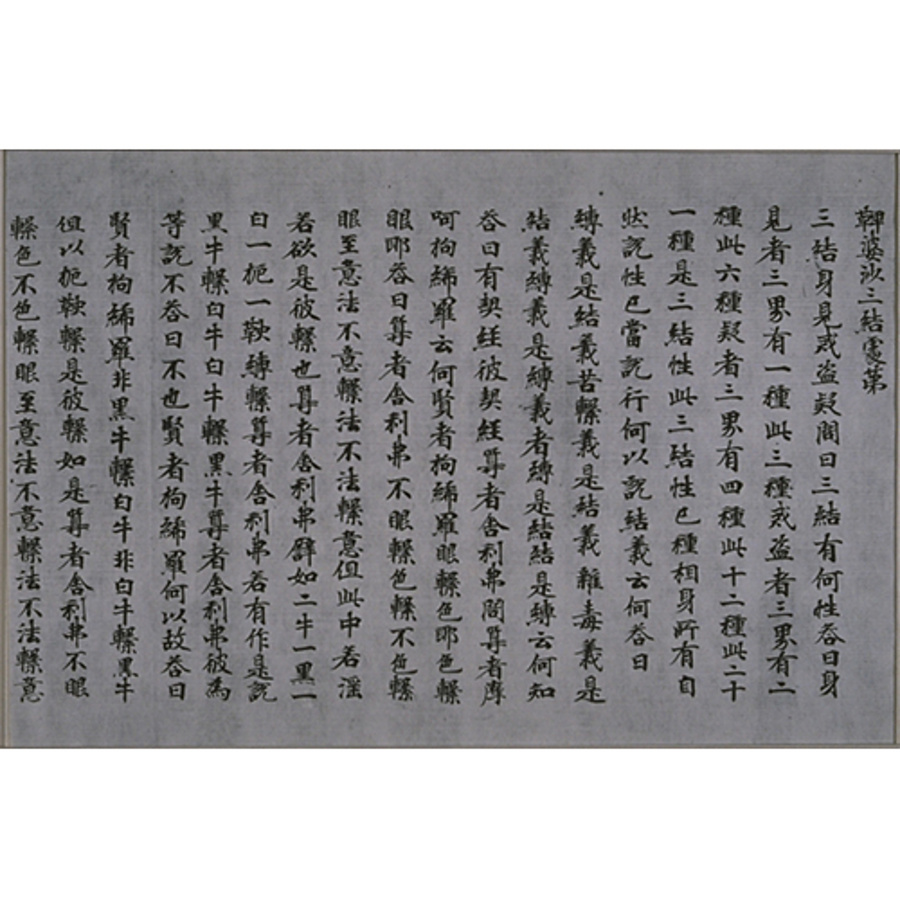 鞞婆沙三結處第
三結身見戒盜疑問曰三結有何性荅曰身
見者三界有一種此三種戒盜者三界有二
種此六種疑者三界有四種此十二種此二十
一種是三結性此三結性已種相身所有自
然說性已當說行何以說結義云何荅曰
縛義是結義苦繫義是結義雜毒義是
結義縛義是縛義者縛是結結是縛云何知
荅曰有契經彼契經尊者舍利弗問尊者摩
呵拘絺羅云何賢者拘絺羅眼繫色耶色繫
眼耶荅曰尊者舍利弗不眼繫色不色繫
眼至意法不意繫法不法繫意但此中若婬
若欲是彼繫也尊者舍利弗譬如二牛一黑一
白一軛一鞅縛繫尊者舍利弗若有作是說
黑牛繫白牛白牛繫黑牛尊者舍利弗彼為
等說不荅曰不也賢者拘絺羅何以故荅曰
賢者拘絺羅非黑牛繫白牛非白牛繫黑牛
但以軛鞅繫是彼繫如是尊者舍利弗不眼
繫色不色繫眼至意法不意繫法不法繫意